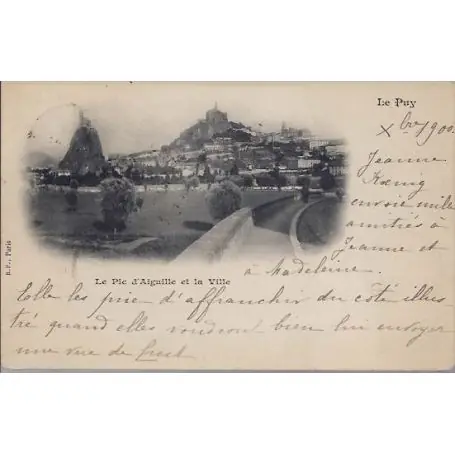 Le Puy
Xbre 1900
Jeanne
Kœnig
envoie mille
amitiés à
Jeanne et
à Madeleine.
B.F., Paris
Le Pic d'Aiguille et la Ville
Elle les prie d'affranchir du côté illus-
tré quand elles voudront bien lui envoyer
une vue de Brest